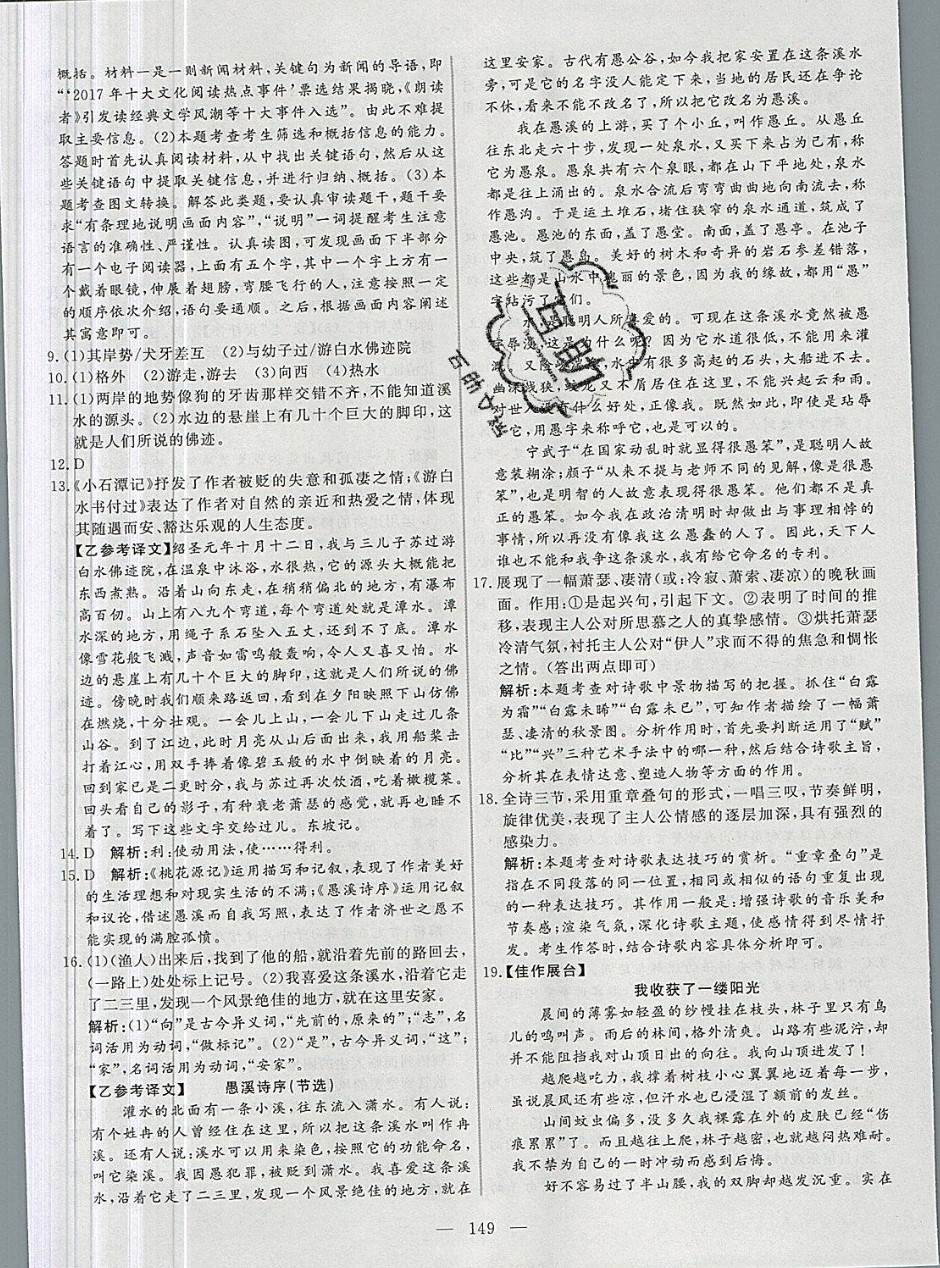 概括。材料一是一则新闻材料,关键句为新闻的导语,即
“‘2017年十大文化阅读热点事件’票选结果揭晓,《朗读
者》引发读经典文学风潮等十大事件入选”。由此不难提
取主要信息。(2)本题考查考生筛选和概括信息的能力。
答题时首先认真阅读材料,从中找出关键语句,然后从这
些关键语句中提取关键信息,并进行归纳、概括。(3)本
题考查图文转换。解答此类题,要认真审读题干,题干要
求“有条理地说明画面内容”,“说明”一词提醒考生注意
语言的准确性、严谨性。认真读图,可发现画面下半部分
有一个电子阅读器,上面有五个字,其中一个字上方有一
个戴着眼镜,伸展着翅膀,弯腰飞行的人,注意按照一定
的顺序依次介绍,语句要通顺。之后,根据画面内容阐述
其寓意即可。
9.(1)其岸势/犬牙差互 (2)与幼子过/游白水佛迹院
10.(1)格外 (2)游走,游去 (3)向西 (4)热水
11.(1)两岸的地势像狗的牙齿那样交错不齐,不能知道溪
水的源头。(2)水边的悬崖上有几十个巨大的脚印,这
就是人们所说的佛迹。
12.D
13.《小石潭记》抒发了作者被贬的失意和孤凄之情;《游白
水书付过》表达了作者对自然的亲近和热爱之情,体现
其随遇而安、豁达乐观的人生态度。
【乙参考译文】绍圣元年十月十二日,我与三儿子苏过游
白水佛迹院,在温泉中沐浴,水很热,它的源头大概能把
东西煮熟。沿着山向东走,在稍稍偏北的地方,有瀑布
高百仞。山上有八九个弯道,每个弯道处就是潭水。潭
水深的地方,用绳子系石坠入五丈,还到不了底。潭水
像雪花般飞溅,声音如雷鸣般轰响,令人又喜又怕。水
边的悬崖上有几十个巨大的脚印,这就是人们所说的佛
迹。傍晚时我们顺来路返回,看到在夕阳映照下山仿佛
在燃烧,十分壮观。一会儿上山,一会儿下山走过几条
山谷。到了江边,此时月亮从山后面出来,我用船桨去
打着江心,用双手捧着像碧玉般的水中倒映着的月亮。
回到家已是二更时分,我与苏过再次饮酒,吃着橄榄菜。
回头看自己的影子,有种衰老萧瑟的感觉,就再也睡不
着了。写下这些文字交给过儿。东坡记。
14.D 解析:利:使动用法,使……得利。
15.D 解析:《桃花源记》运用描写和记叙,表现了作者美好
的生活理想和对现实生活的不满;《愚溪诗序》运用记叙
和议论,借述愚溪而自我写照,表达了作者济世之愿不
能实现的满腔孤愤。
16.(1)(渔人)出来后,找到了他的船,就沿着先前的路回去,
(一路上)处处标上记号。(2)我喜爱这条溪水,沿着它走
了二三里,发现一个风景绝佳的地方,就在这里安家。
解析:(1)“向”是古今异义词,“先前的,原来的”;“志”,名
词活用为动词,“做标记”。(2)“是”,古今异义词,“这”;
“家”,名词活用为动词,“安家”。
【乙参考译文】 愚溪诗序(节选)
灌水的北面有一条小溪,往东流入潇水。有人说:
有个姓冉的人曾经住在这里,所以把这条溪水叫作冉
溪。还有人说:溪水可以用来染色,按它的功能命名,
叫它染溪。我因愚犯罪,被贬到潇水。我喜爱这条溪
水,沿着它走了二三里,发现一个风景绝佳的地方,就在
这里安家。古代有愚公谷,如今我把家安置在这条溪水
旁,可是它的名字没人能定下来,当地的居民还在争论
不休,看来不能不改名了,所以把它改名为愚溪。
我在愚溪的上游,买了个小丘,叫作愚丘。从愚丘
往东北走六十步,发现一处泉水,又买下来占为己有,称
它为愚泉。愚泉共有六个泉眼,都在山下平地处,泉水
都是往上涌出的。泉水合流后弯弯曲曲地向南流去,称
作愚沟。于是运土堆石,堵住狭窄的泉水通道,筑成了
愚池。愚池的东面,盖了愚堂。南面,盖了愚亭。在池子
中央,筑了愚岛。美好的树木和奇异的岩石参差错落,
这些都是山水中瑰丽的景色,因为我的缘故,都用“愚”
字玷污了它们。
水,是聪明人所喜爱的。可现在这条溪水竟然被愚
字辱漫,这是为什么呢?因为它水道很低,不能用来灌
溉。又险峻湍急,水中有很多高起的石头,大船进不去。
幽深浅狭,蛟龙不屑一顾,不能兴起云和雨。
对世人没有什么好处,正像我。既然如此,即使是玷辱
了它,用愚字来称呼它,也是可以的。
宁武子“在国家动乱时就显得很愚笨”,是聪明人故
意装糊涂;颜子“从来不提与老师不同的见解,像是很愚
笨”,也是明智的人故意表现得很愚笨。他们都不是真正
的愚笨。如今我在政治清明时却做出与事理相悖的
事情,所以再没有像我这么愚蠢的人了。因此,天下人
谁也不能和我争这条溪水,我有给它命名的专利。
17.展现了一幅萧瑟、凄清(或:冷寂、萧索、凄凉)的晚秋画
面。作用:①是起兴句,引起下文。②表明了时间的推
移,表现主人公对所思慕之人的真挚感情。③烘托萧瑟
冷清气氛,衬托主人公对“伊人”求而不得的焦急和惆怅
之情。(答出两点即可)
解析:本题考查对诗歌中景物描写的把握。抓住“白露
为霜”“白露未晞”“白露未已”,可知作者描绘了一幅萧
瑟、凄清的秋景图。分析作用时,首先要判断运用了“赋”
“比”“兴”三种艺术手法中的哪一种,然后结合诗歌主旨,
分析其在表情达意,塑造人物等方面的作用。
18.全诗三节,采用重章叠句的形式,一唱三叹,节奏鲜明,
旋律优美,表现了主人公情感的逐层加深,具有强烈的
感染力。
解析:本题考查对诗歌表达技巧的赏析。“重章叠句”是
指在不同段落的同一位置,相同或相似的语句重复出现
的一种表达技巧。其作用一般是:增强诗歌的音乐美和
节奏感;渲染气氛,深化诗歌主题,使感情得到尽情抒
发。考生作答时,结合诗歌内容具体分析即可。
19.【佳作展台】
我收获了一缕阳光
晨间的薄雾如轻盈的纱幔挂在枝头,林子里只有鸟
儿的鸣叫声。雨后的林间,格外清爽。山路有些泥泞,却
并不能阻挡我对山顶日出的向往。我向山顶进发了!
越爬越吃力,我撑着树枝小心翼翼地迈着每一步,
虽说晨风还有些凉,但汗水也已浸湿了额前的发丝。
山间蚊虫偏多,没多久我裸露在外的皮肤已经“伤
痕累累”了。而且越往上爬,林子越密,也就越闷热难耐。
我不禁为自己的一时冲动而感到后悔。
好不容易过了半山腰,我的双脚却越发沉重。实在
— 149 —